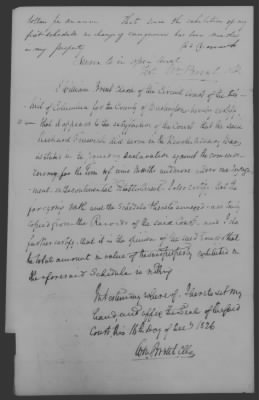 dollars per annum That since the exhibition of my
first schedule no change of circumstances has been made
in my property
Sworn to in open Court
Test Wm Brent Clk
I William Brent Clerk of the Circuit Court of the Dis-
trict of Columbia for the County of Washington hereby certify
that it appears to the satisfaction of the Court that the said
did serve in the Revolutionary War
as stated in the foregoing declaration against the common
enemy for the term of nine months under one engage-
ment on Continental Establishment. I also certify that the
foregoing oath and the Schedule thereto annexed are truly
copied from the Record of the said Court and I do
further certify that it is the opinion of the said Court that
the total amount in value of the property exhibited in
the aforesaid Schedule is nothing
In testimony whereof I hereto set my
hand and affix the Seal of the said
Court this 16th day of Decr 1826
Wm Brent Clk